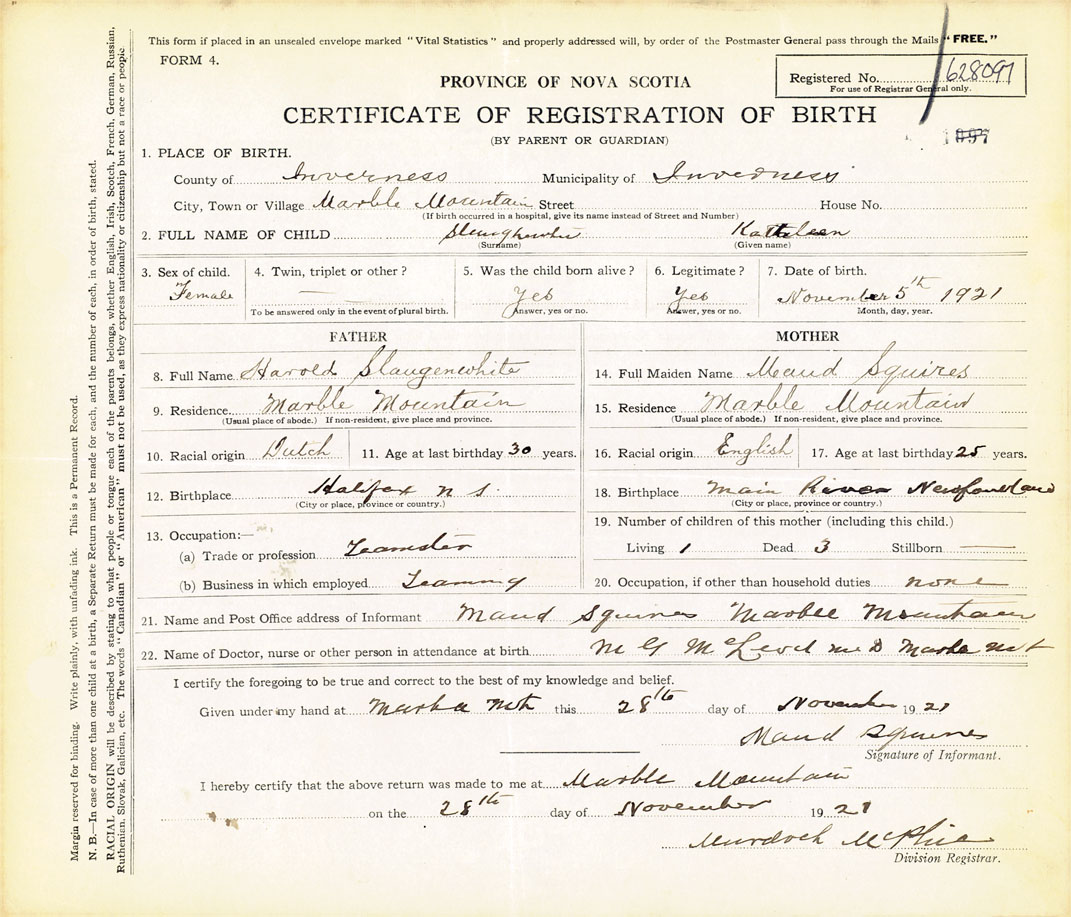 This form if placed in an unsealed envelope marked "Vital Statistics" and properly addressed will, by order of the Postmaster General pass through the Mails "FREE."
FORM 4.
Registered No. 628097
For use of Registrar General only.
PROVINCE OF NOVA SCOTIA
CERTIFICATE OF REGISTRATION OF BIRTH
(BY PARENT OR GUARDIAN)
1. PLACE OF BIRTH.
County of Inverness Municipality of Inverness
City, Town or Village Marble Mountain Street House No.
(If birth occurred in a hospital, give its name instead of Street and Number)
2. FULL NAME OF CHILD Kathleen
(Surname) (Given name)
3. Sex of child. 4. Twin, triplet or other? 5. Was the child born alive? 6. Legitimate? 7. Date of birth.
Female — Yes Yes November 5th 1921
To be answered only in the event of plural birth. Answer, yes or no. Answer, yes or no. Month, day, year.
FATHER
8. Full Name Harold Slaugenwhite
9. Residence Marble Mountain
(Usual place of abode.) If non-resident, give place and province.
10. Racial origin Dutch 11. Age at last birthday 30 years.
12. Birthplace Halifax n s.
(City or place, province or country.)
13. Occupation:—
(a) Trade or profession Teamster
(b) Business in which employed Teaming
MOTHER
14. Full Maiden Name Maud Squires
15. Residence Marble Mountain
(Usual place of abode.) If non-resident, give place and province.
16. Racial origin English 17. Age at last birthday 25 years.
18. Birthplace Main River Newfoundland
(City or place, province or country.)
19. Number of children of this mother (including this child.)
Living 1 Dead 3 Stillborn —
20. Occupation, if other than household duties none
21. Name and Post Office address of Informant Maud Squires Marble Mountain
22. Name of Doctor, nurse or other person in attendance at birth M G McLeod M D Marble Mt
I certify the foregoing to be true and correct to the best of my knowledge and belief.
Given under my hand at Marble Mt this 28th day of November 1921
Maud Squires
Signature of Informant.
I hereby certify that the above return was made to me at Marble Mountain
on the 28th day of November 1921
Murdoch McPhie
Division Registrar.
Margin reserved for binding. Write plainly, with unfading ink. This is a Permanent Record.
N. B.—In case of more than one child at a birth, a Separate Return must be made for each, and the number of each, in order of birth, stated.
RACIAL ORIGIN will be described by stating to what people or tongue each of the parents belongs, whether English, Irish, Scotch, French, German, Russian,
Ruthenian, Slovak, Galician, etc. The words "Canadian" or "American" must not be used, as they express nationality or citizenship but not a race or people.